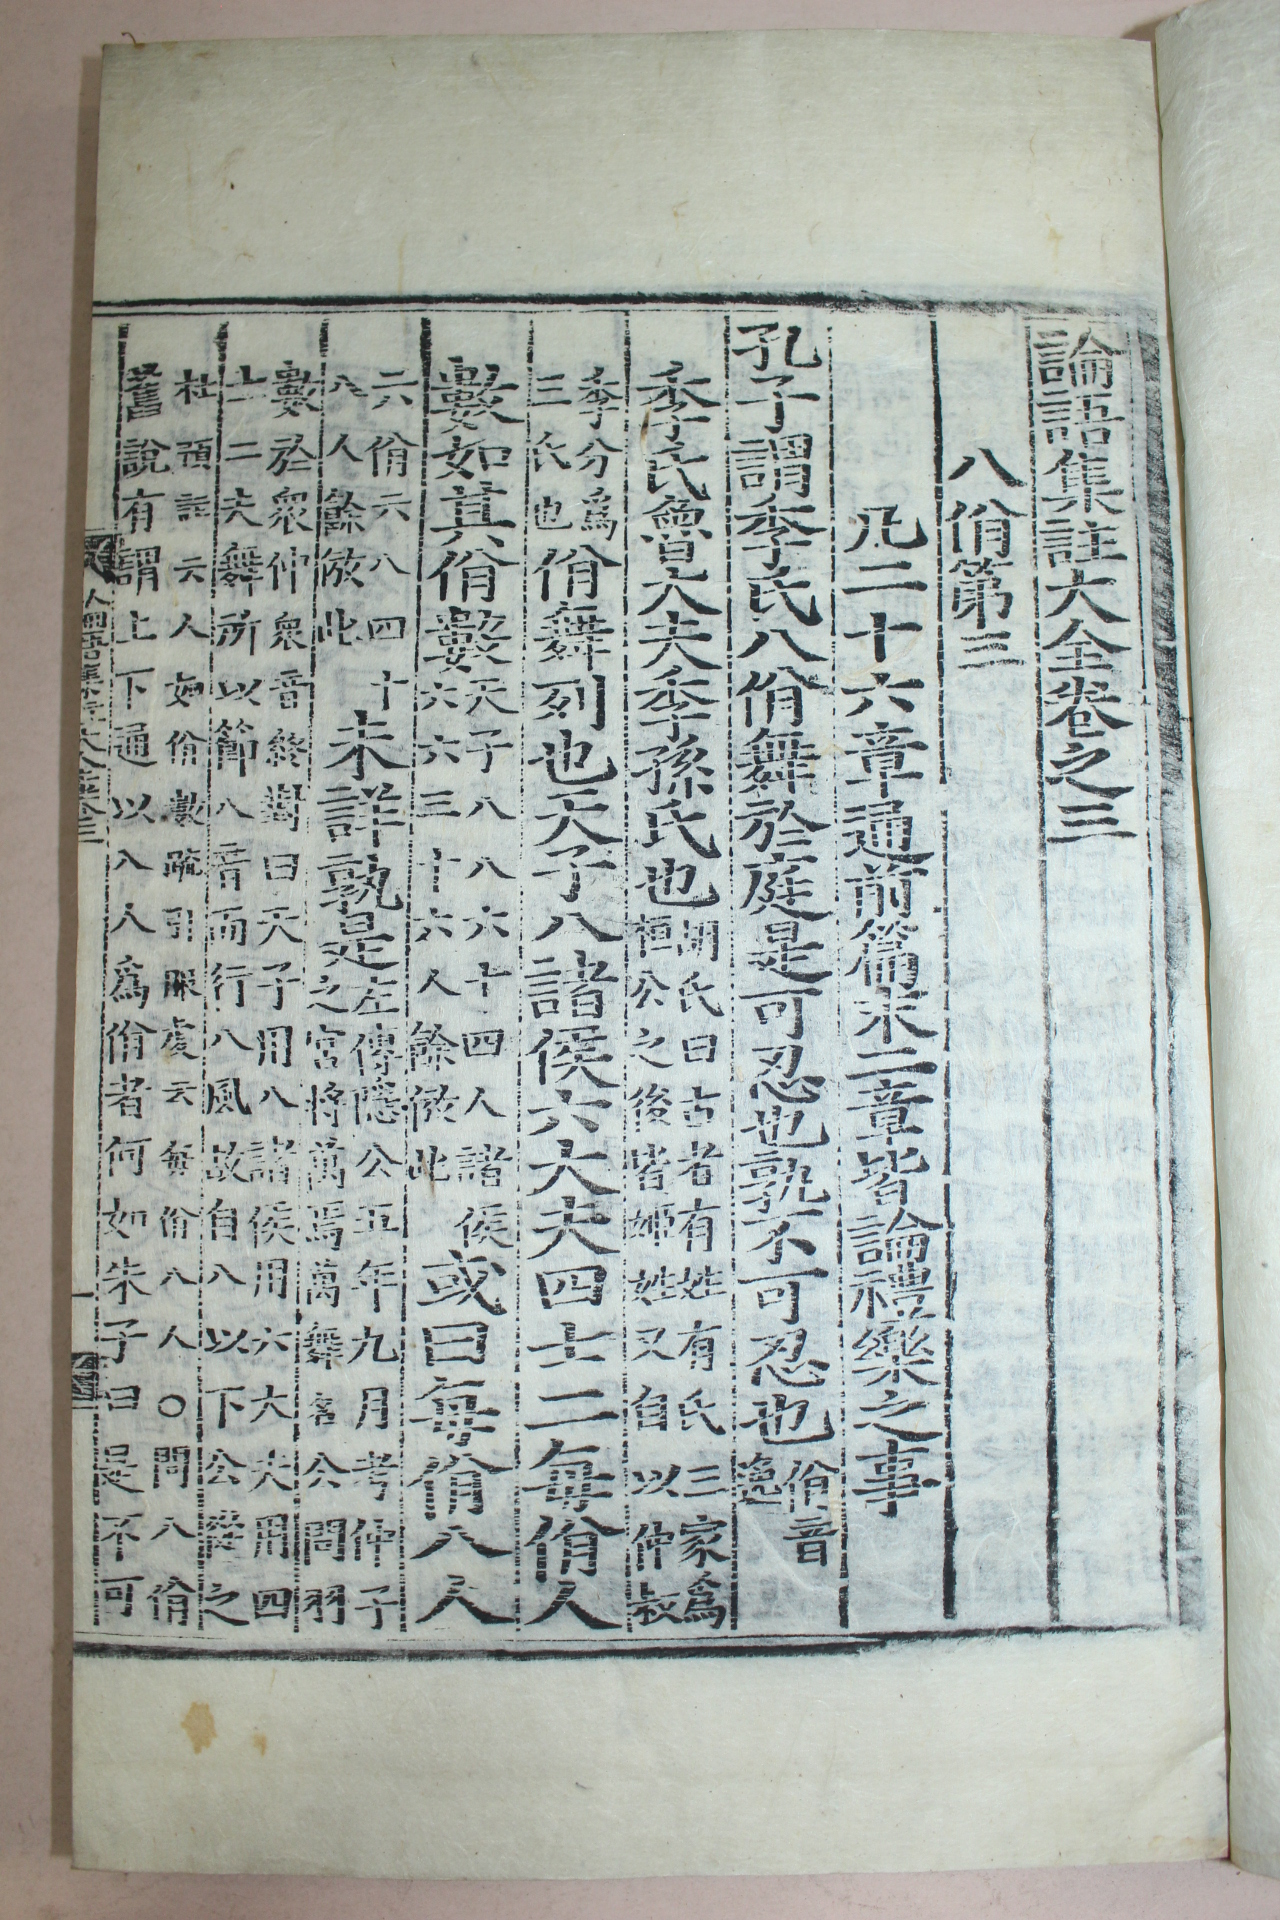 論語集註大全卷之三
八佾第三
凡二十六章通前篇末二章皆論禮樂之事
孔子謂季氏八佾舞於庭是可忍也孰不可忍也佾音
逸
季氏魯大夫季孫氏也胡氏曰古者有姓有氏三家爲
桓公之後皆姬姓又自以仲叔
季分爲
三氏也佾舞列也天子八諸侯六大夫四士二每佾人
數如其佾數天子八八六十四人諸侯
六六三十六人餘倣此或曰每佾八人
六佾六八四十
八人餘倣此未詳孰是左傳隱公五年九月考仲子
之宮將萬焉萬舞名公問羽
數於衆仲衆音終對曰天子用八諸侯用六大夫用四
士二夫舞所以節八音而行八風故自八以下公從之
杜預註云人如佾數疏引服虔云每佾八人○問八佾
舊說有謂上下通以八人爲佾者何如朱子曰是不可
論語集註大全卷三